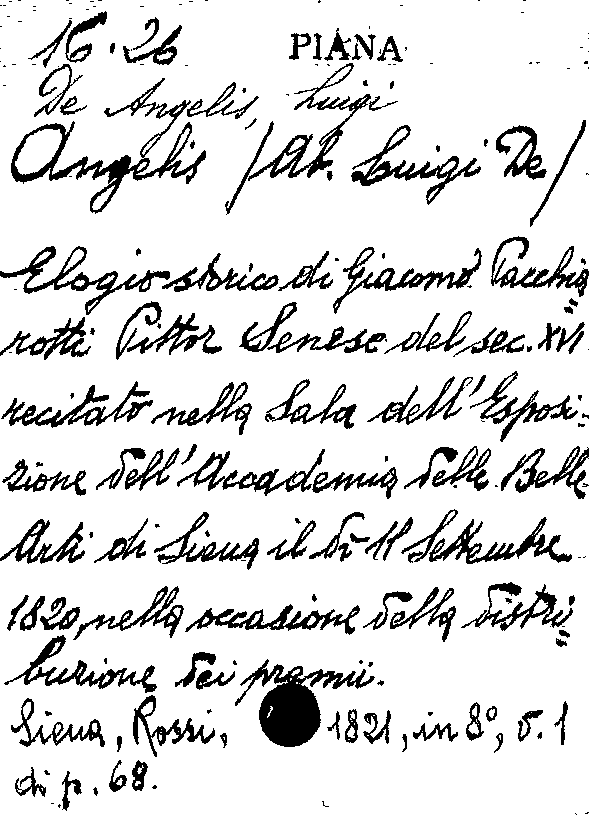 16.26 PIANA
De Angelis, Luigi
Angelis /Ab. Luigi De/
Elogio storico di Giacomo Pacchia
rotti Pittor Senese del sec. XVI
recitato nella Sala dell'Esposi-
zione dell'Accademia delle Belle
Arti di Siena il dì 11 Settembre
1820, nella occasione della distri
buzione dei premii.
Siena, Rossi, 1821, in 8°, v. 1
di p. 68.